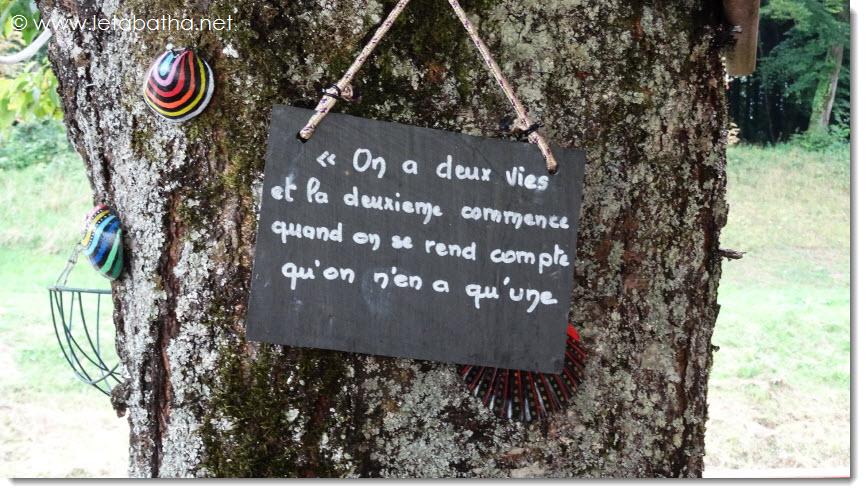 © www.letabatha.net
« On a deux vies
et la deuxieme commence
quand on se rend compte
qu'on n'en a qu'une